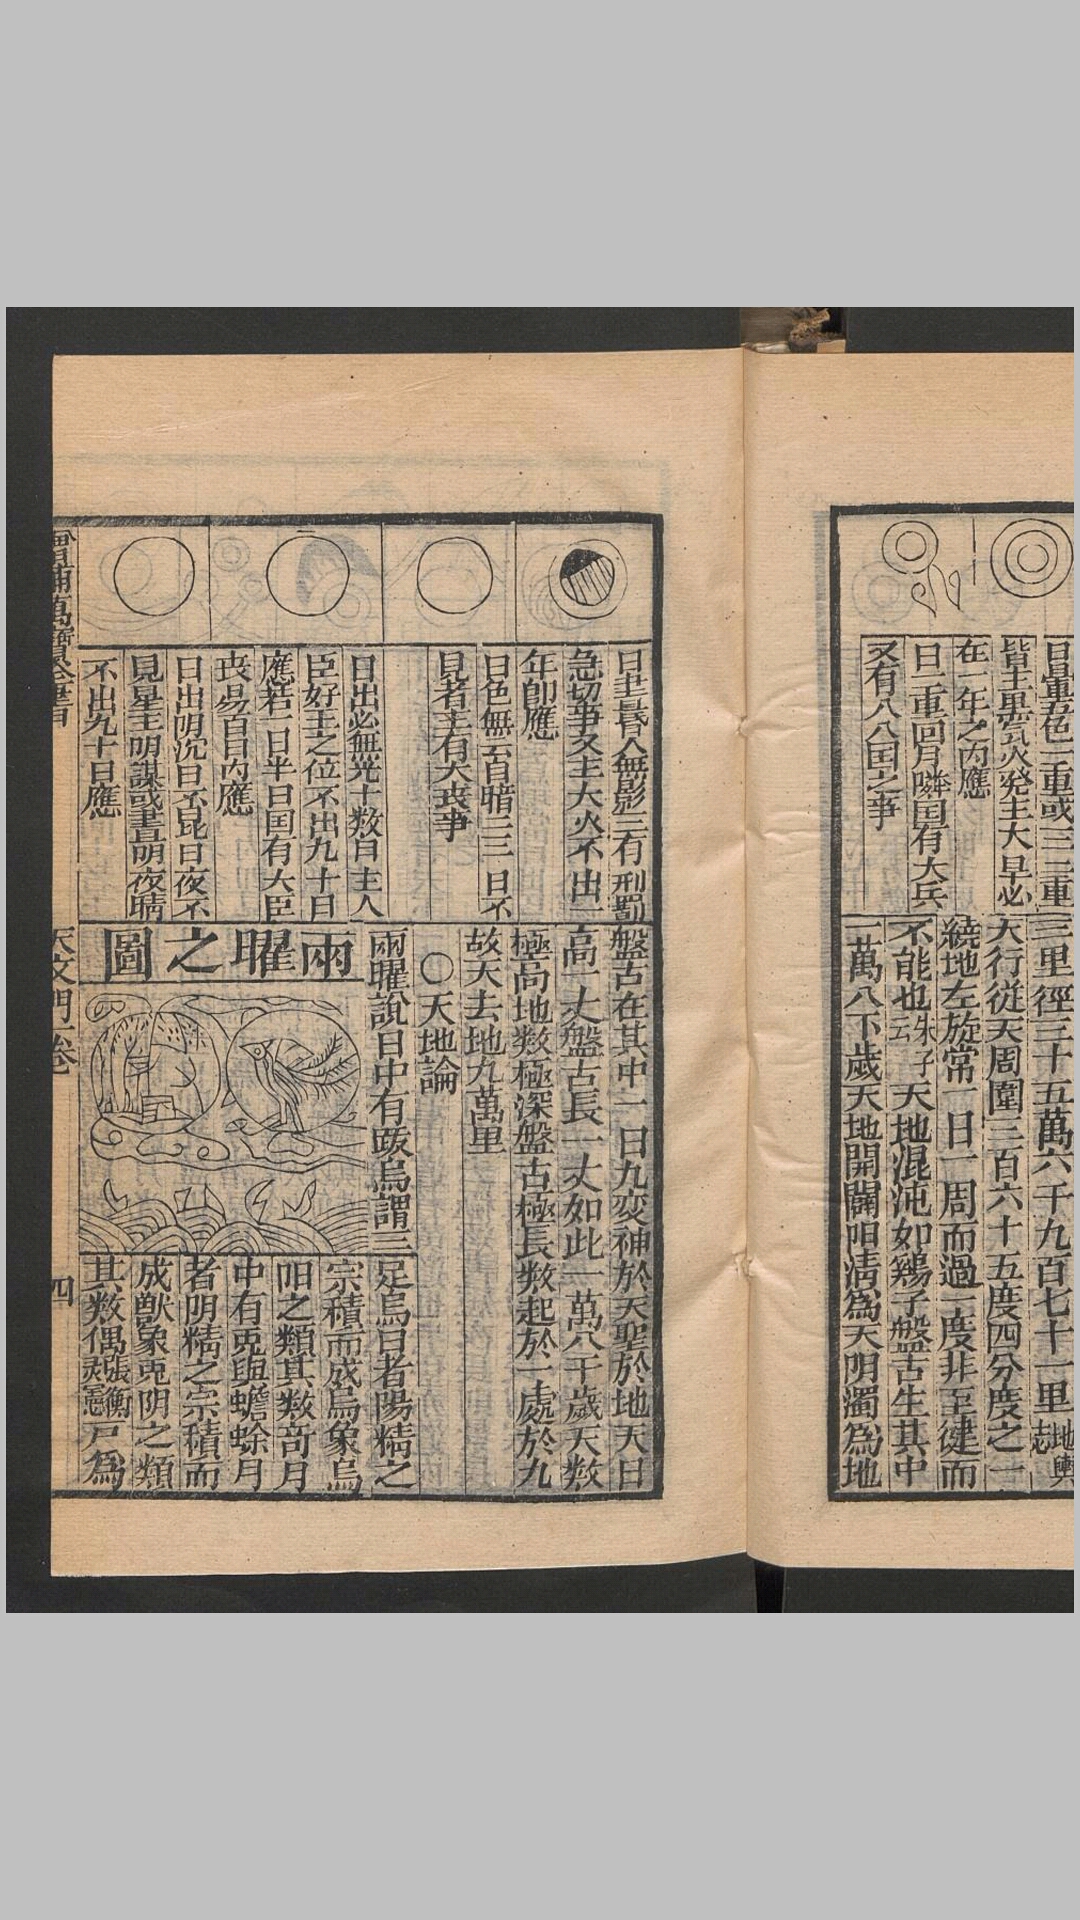 日暈五色二重或三二重
皆主黑雲氣火発主大旱必
在一年之内應
日一重回月暈国有大兵
又有八八国之事
三里徑三十五萬六千九百七十一里地輿志
天行從天周圍三百六十五度四分度之一
繞地左旋常一日一周而過一度非至健而
不能也朱子云天地混沌如鷄子盤古生其中
一萬八千歲天地開闢阳清為天阴濁為地
日晝昏人無影三有刑罰
急切事又主大火不出一
年即應
日色無云百暗三三日不
見者主有大丧事
日出必無光十数日主人
臣好主之位不出九十日
應若一日半日国有大臣
丧易百日内應
日出阴沉日不昆日夜不
見星主阴謀或晝阴夜晴
不出九十日應
盤古在其中一日九变神於天聖於地天日
高一丈盤古長一丈如此一萬八千歲天数
極高地数極深盤古極長数起於一處於九
故天去地九萬里
〇天地論
兩曜說日中有踆烏謂三
兩曜之圖
足烏日者陽精之
宗積而成烏象烏
阳之類其数竒月
中有兎與蟾蜍月
者阴精之宗積而
成獸象兎阴之類
其数偶張衡灵憲曰為
增補萬寶全書
天文門一卷
四